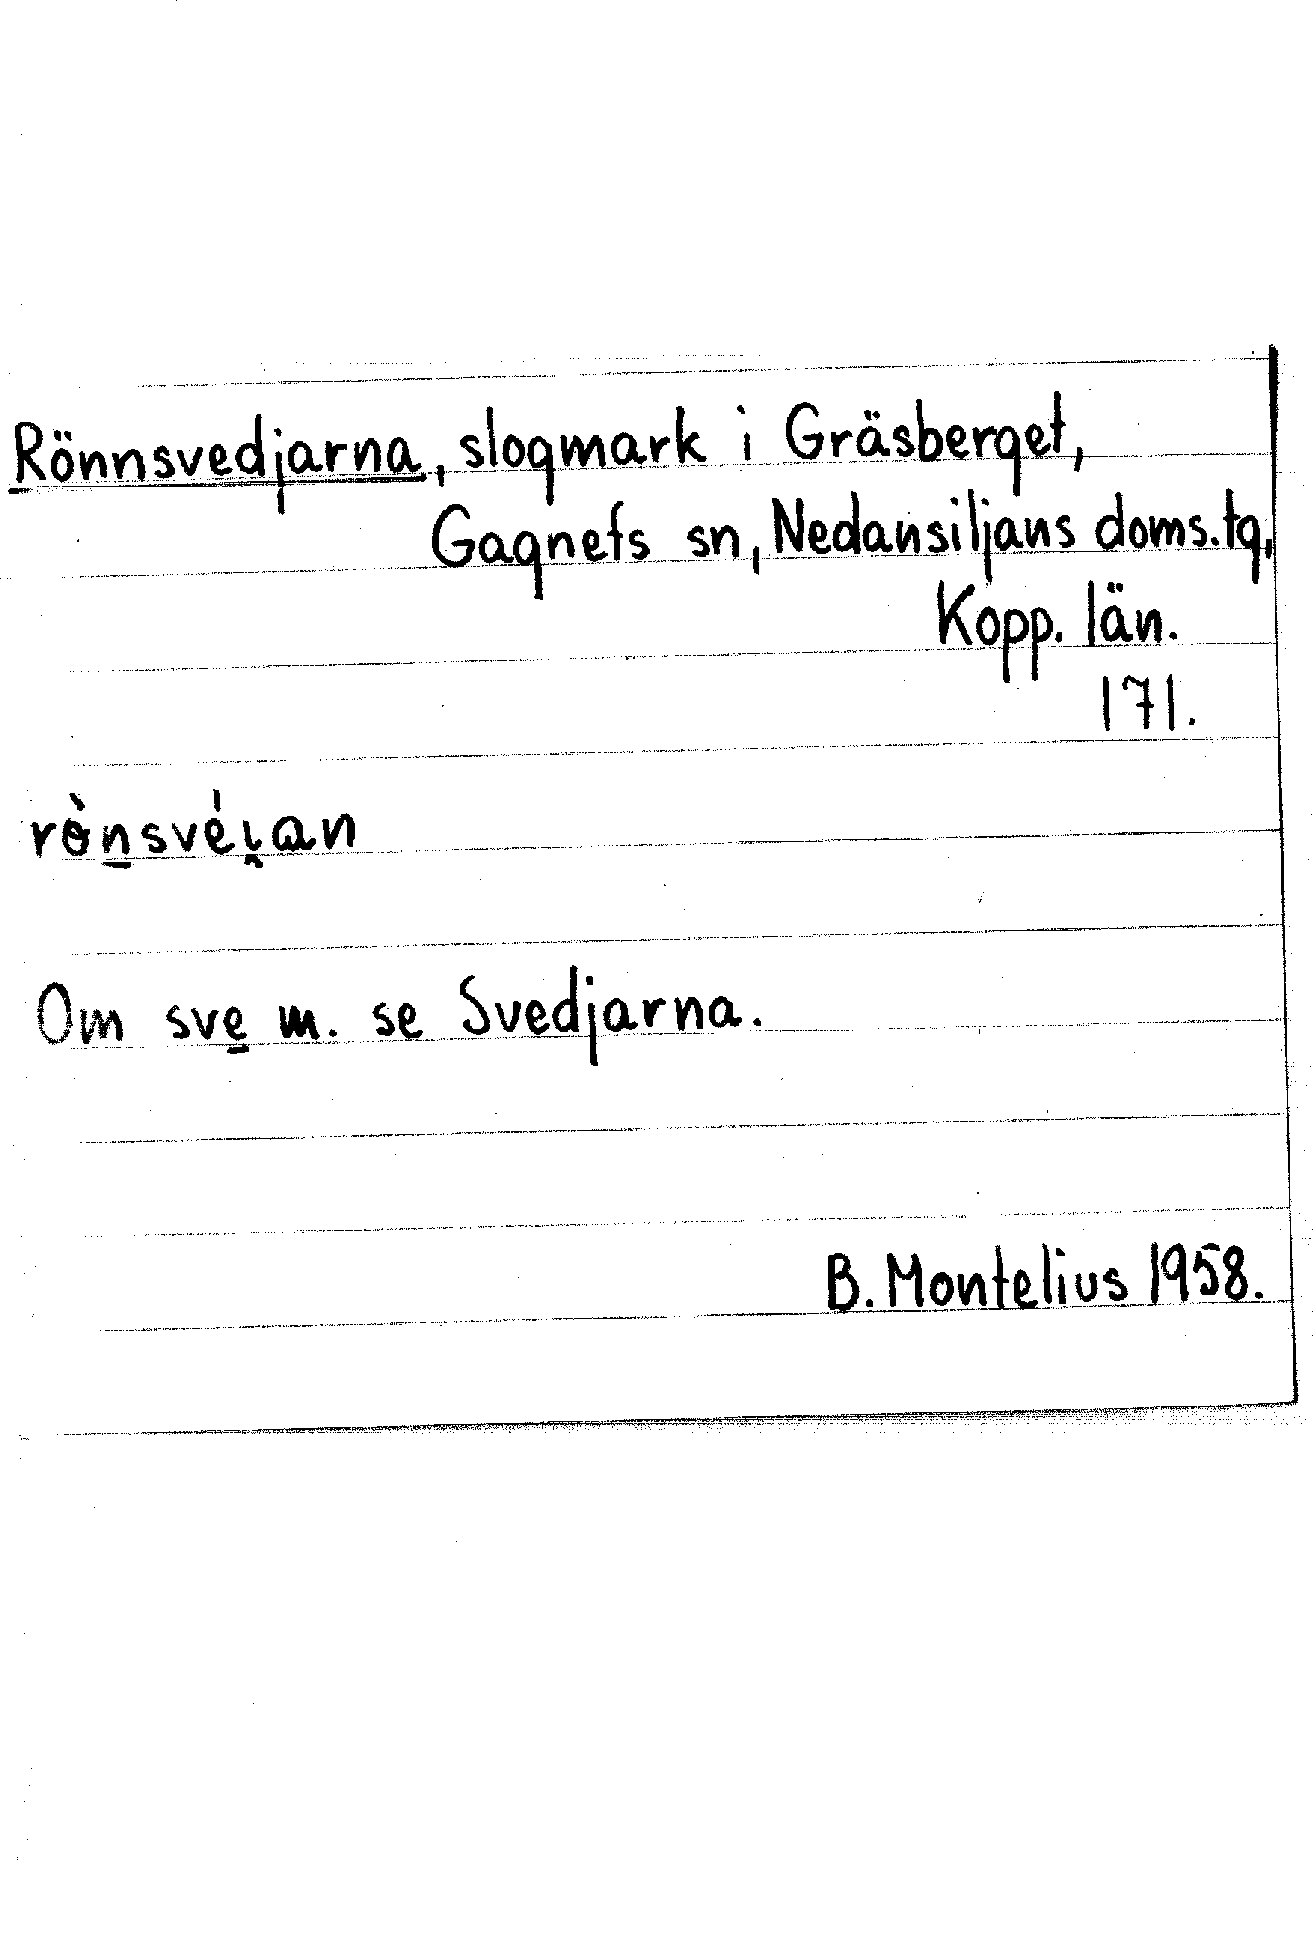 Rönnsvedjarna, slogmark i Gräsberget,
Gagnefs sn, Nedansiljans doms.tg,
Kopp. län.
171.
rɵ̀n̲své̩i̯an
Om sve̲ m. se Svedjarna.
B. Montelius 1958.